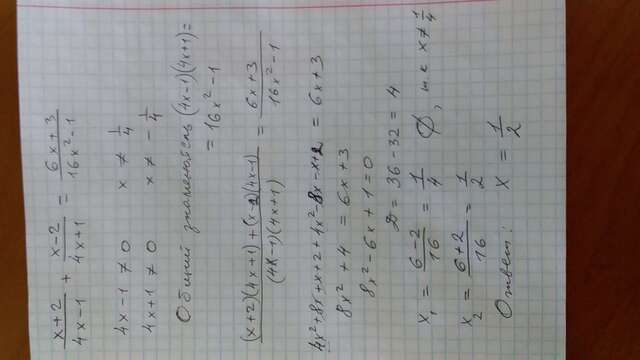 (x+2)/(4x-1) + (x-2)/(4x+1) = (6x+3)/(16x²-1)
4x-1 ≠ 0 x ≠ 1/4
4x+1 ≠ 0 x ≠ -1/4
Общий знаменатель (4x-1)(4x+1) =
= 16x²-1
((x+2)(4x+1)+(x-2)(4x-1))/((4x-1)(4x+1)) = (6x+3)/(16x²-1)
4x²+8x+x+2+4x²-8x-x+2 = 6x+3
8x²+4 = 6x+3
8x²-6x+1=0
D = 36-32 = 4
x₁ = (6-2)/16 = 1/4 ∅, т.к x≠1/4
x₂ = (6+2)/16 = 1/2
Ответ: x = 1/2